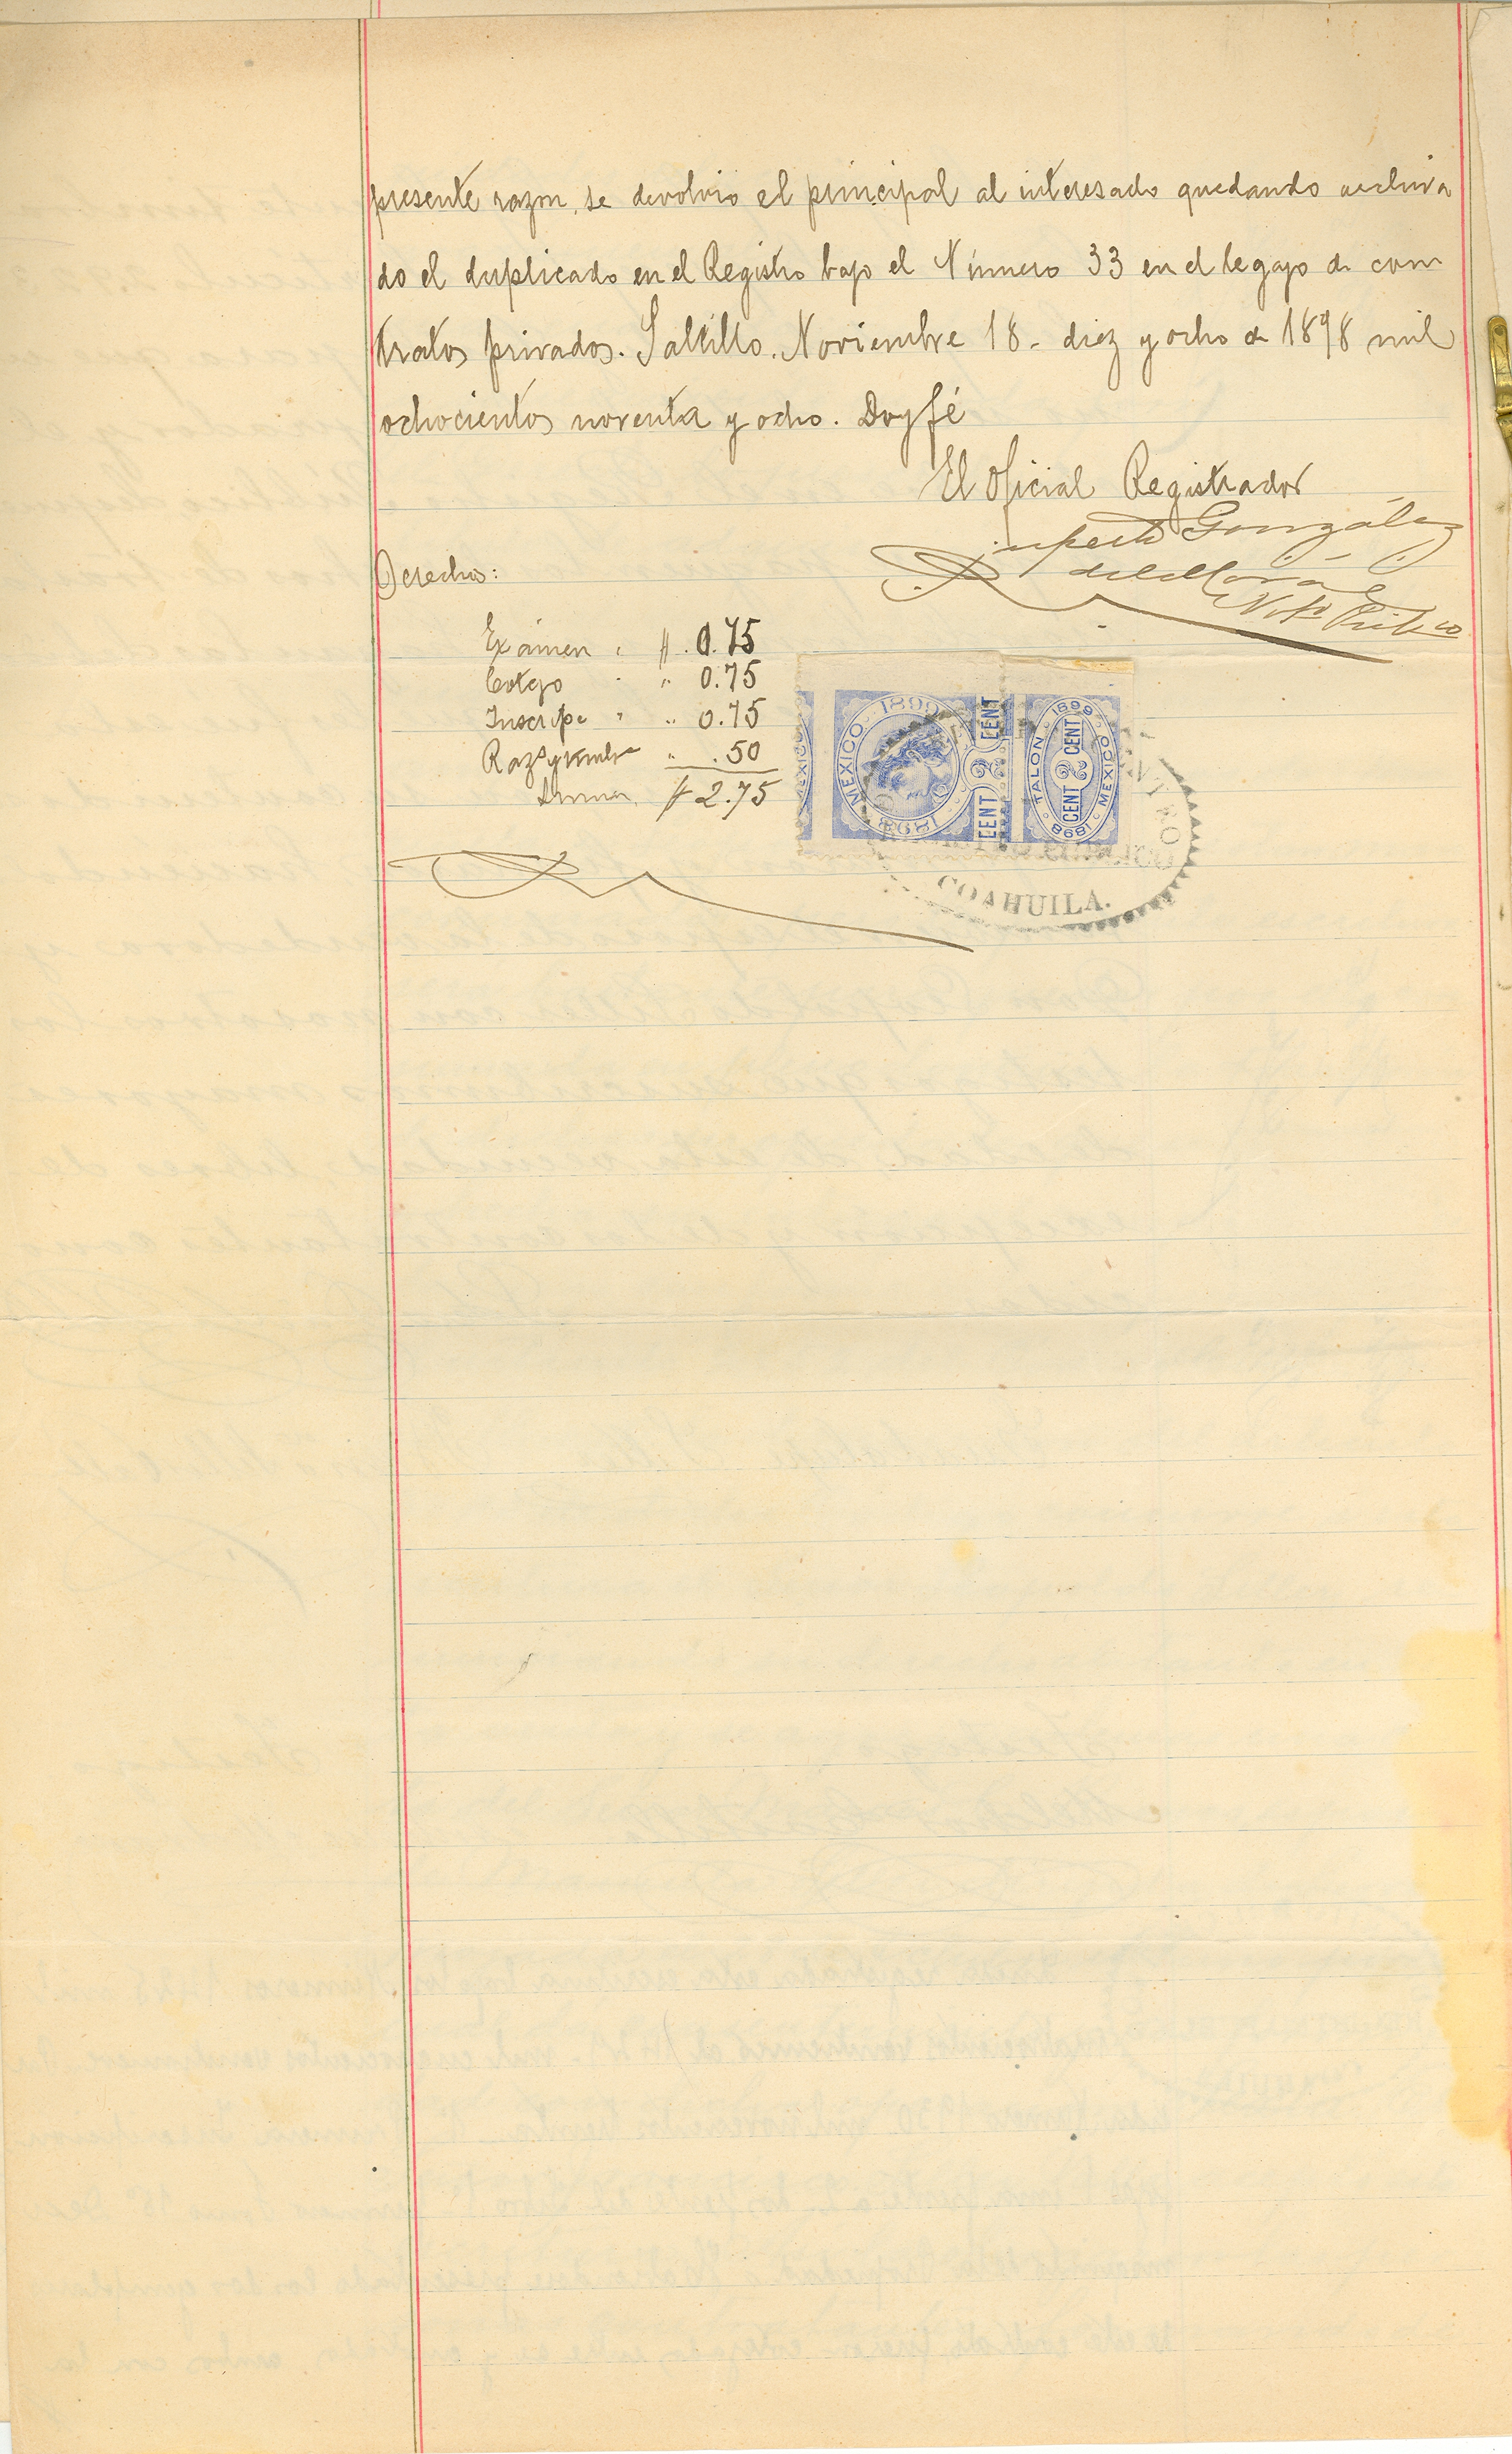 presente razon, se devolvió el principal al interesado quedando archiva
do el duplicado en el Registro bajo el Número 33 en el legajo de con
tratos privados. Saltillo. Noviembre 18 - diez y ocho de 1898 mil
ochocientos noventa y ocho. Doy fé
El Oficial Registrador
González
Derechos:
Exámen " $ 0.75
Cotejo " " 0.75
Inscripe " " 0.75
" .50
Suma, $ 2.75
MEXICO 1899 1898
2 CENT CENT
TALON 1899 MEXICO 1898
2 CENT CENT
COAHUILA.